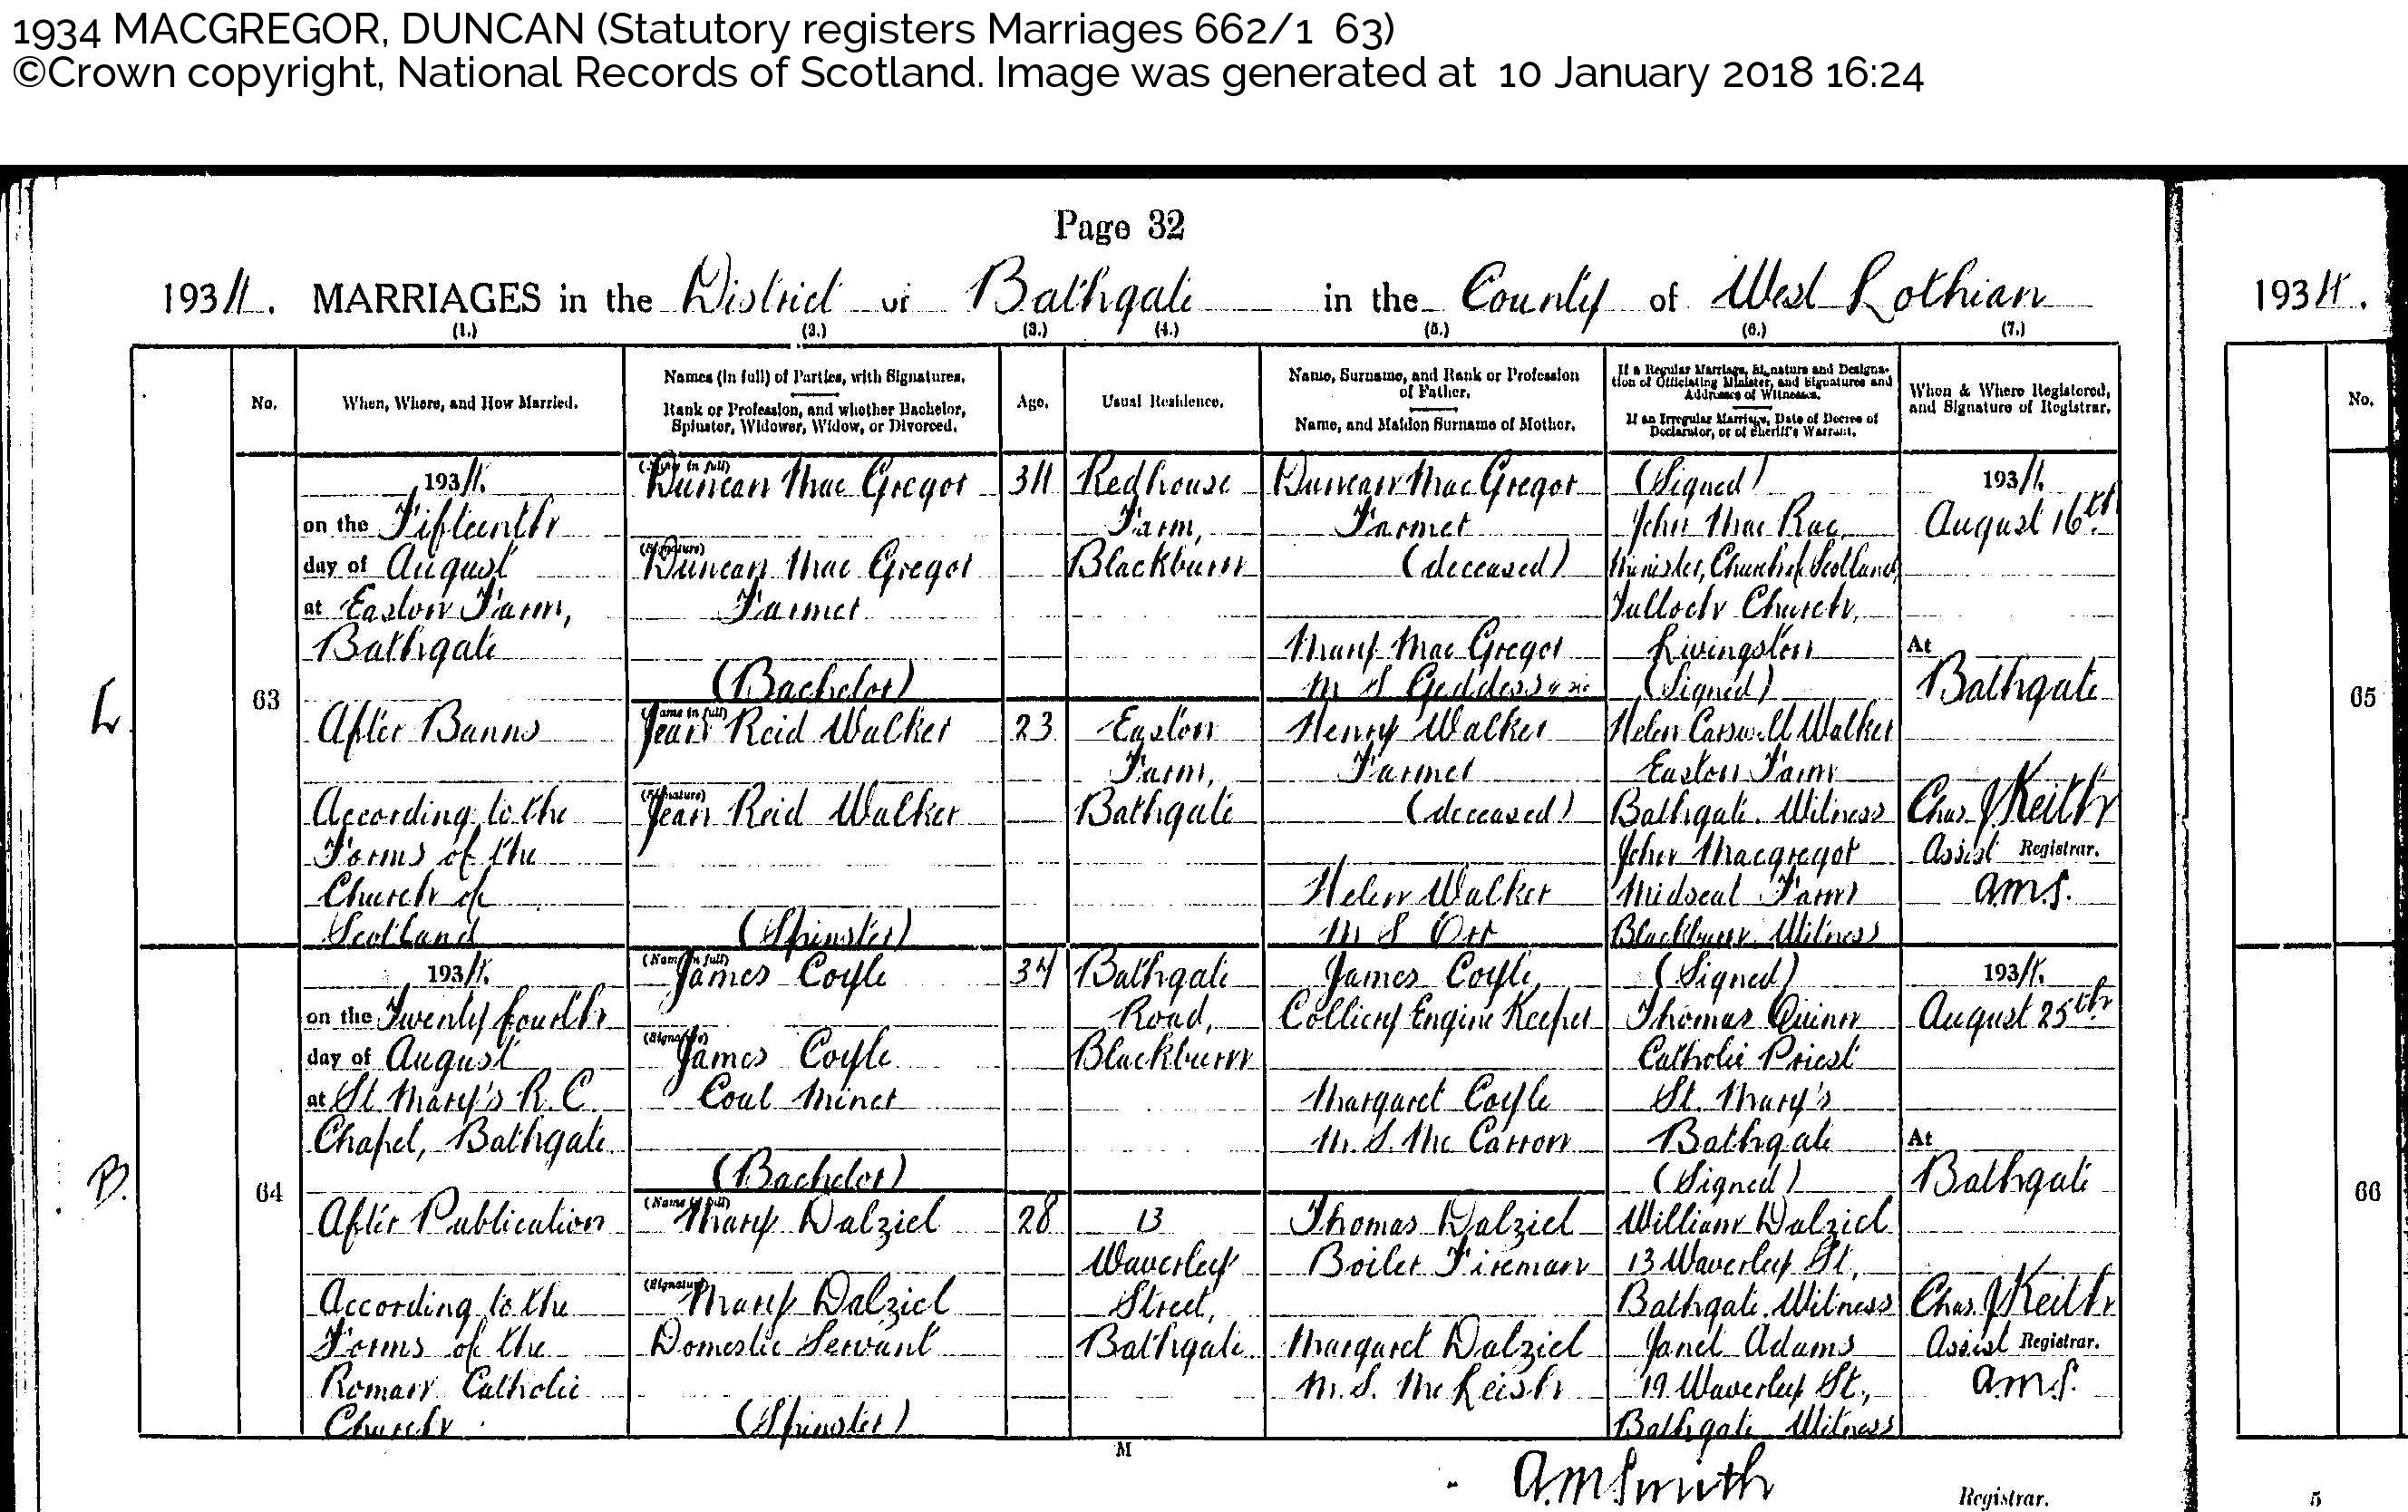 1934 MACGREGOR, DUNCAN (Statutory registers Marriages 662/1 63)
©Crown copyright, National Records of Scotland. Image was generated at 10 January 2018 16:24
Page 32
1934. MARRIAGES in the District of Bathgate in the County of West Lothian
1934.
(1.) (2.) (3.) (4.) (5.) (6.) (7.)
No.
When, Where, and How Married.
Names (in full) of Parties, with Signatures.
Rank or Profession, and whether Bachelor,
Spinster, Widower, Widow, or Divorced.
Age.
Usual Residence.
Name, Surname, and Rank or Profession
of Father.
Name, and Maiden Surname of Mother.
If a Regular Marriage, Signature and Designa-
tion of Officiating Minister, and Signatures and
Addresses of Witnesses.
If an Irregular Marriage, Date of Decree of
Declarator, or of Sheriff's Warrant.
When & Where Registered,
and Signature of Registrar.
No.
L.
63
1934.
on the Fifteenth
day of August
at Easton Farm,
Bathgate
After Banns
According to the
Forms of the
Church of
Scotland
(Name in full)
Duncan Mac Gregor
(Signature)
Duncan Mac Gregor
Farmer
(Bachelor)
(Name in full)
Jean Reid Walker
(Signature)
Jean Reid Walker
(Spinster)
34
23
Redhouse
Farm,
Blackburn
Easton
Farm,
Bathgate
Duncan Mac Gregor
Farmer
(deceased)
Mary Mac Gregor
M S Geddes
Henry Walker
Farmer
(deceased)
Helen Walker
M S Orr
(Signed)
John Mac Rae,
Minister, Church of Scotland,
Tulloch Church,
Livingston
(Signed)
Helen Carswell Walker
Easton Farm
Bathgate. Witness
John Macgregor
Midseat Farm
Blackburn. Witness
1934.
August 16th.
At
Bathgate
Chas. J Keith
Assist Registrar.
A.M.S.
65
B.
64
1934.
on the Twenty fourth
day of August
at St. Mary's R. C.
Chapel, Bathgate
After Publication
According to the
Forms of the
Roman Catholic
Church.
(Name in full)
James Coyle
(Signature)
James Coyle
Coal Miner
(Bachelor)
(Name in full)
Mary Dalziel
(Signature)
Mary Dalziel
Domestic Servant
(Spinster)
34
28
Bathgate
Road,
Blackburn
13
Waverley
Street,
Bathgate
James Coyle,
Colliery Engine Keeper
Margaret Coyle
M. S. Mc Carron
Thomas Dalziel
Boiler Fireman
Margaret Dalziel
M. S. Mc Leish
(Signed)
Thomas Quinn
Catholic Priest
St. Mary's
Bathgate
(Signed)
William Dalziel
13 Waverley St.,
Bathgate. Witness
Janet Adams
19 Waverley St.,
Bathgate Witness
1934.
August 25th.
At
Bathgate
Chas. J Keith
Assist Registrar.
A.M.S.
66
M
A.M Smith
Registrar.
5